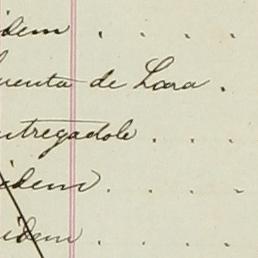 idem . . . .
uenta de Lara .
ntregadole . . . .
idem . . . .
idem . . . .